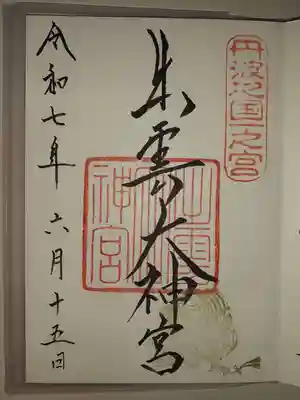 丹波之国一之宮
出雲大神宮
出雲
神宮
令和七年六月十五日